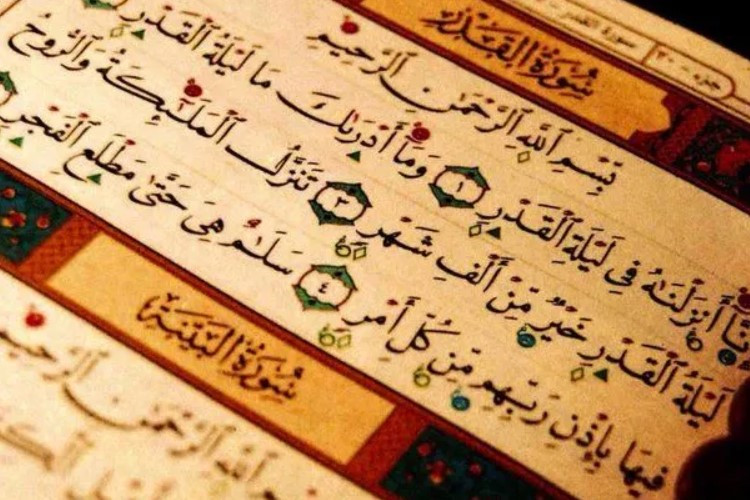 جزء ٣٠ سورة القدر
سُورَةُ الْقَدْرِ
بِسْمِ ٱللَّهِ ٱلرَّحْمَٰنِ ٱلرَّحِيمِ
إِنَّا أَنزَلْنَاهُ فِي لَيْلَةِ ٱلْقَدْرِ ١ وَمَا أَدْرَىٰكَ مَا لَيْلَةُ ٱلْقَدْرِ
لَيْلَةُ ٱلْقَدْرِ خَيْرٌ مِّنْ أَلْفِ شَهْرٍ ٣ تَنَزَّلُ ٱلْمَلَٰٓئِكَةُ وَٱلرُّوحُ
فِيهَا بِإِذْنِ رَبِّهِم مِّن كُلِّ أَمْرٍ ٤ سَلَٰمٌ هِيَ حَتَّىٰ مَطْلَعِ ٱلْفَجْرِ
سُورَةُ الْبَيِّنَةِ
ٱللَّهِ ٱلرَّحْمَٰنِ ٱلرَّحِيمِ